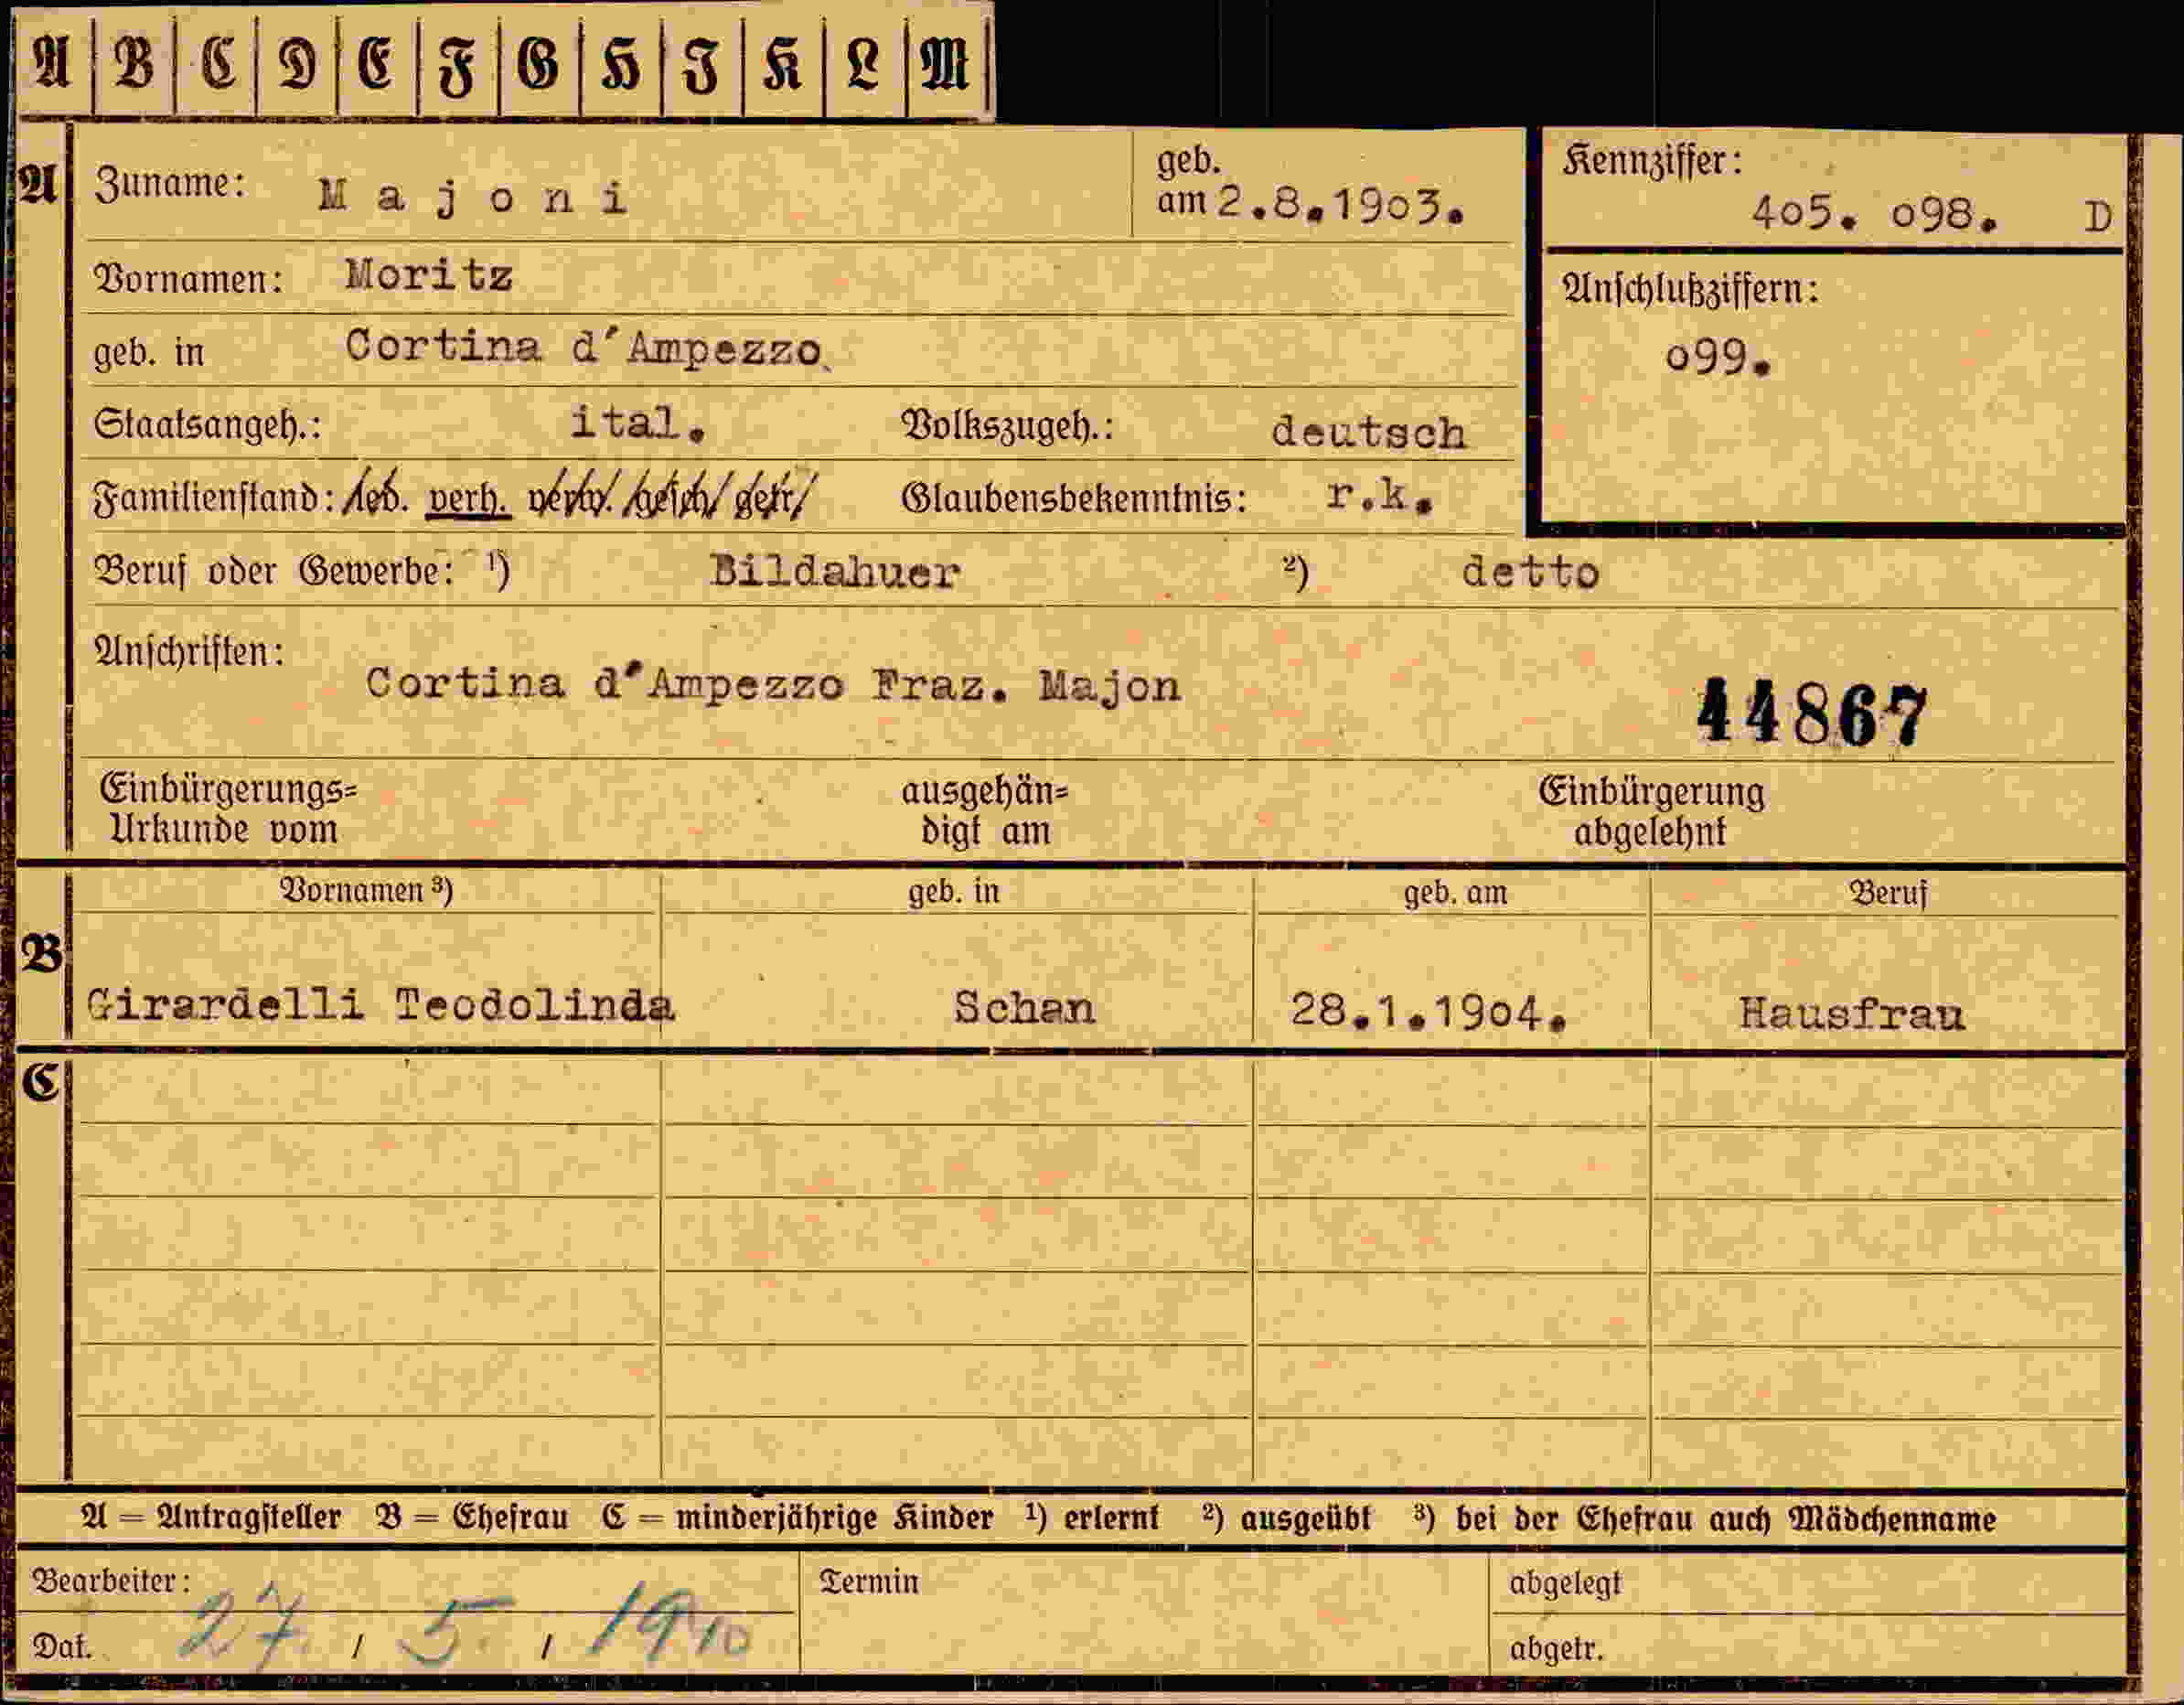 A B C D E F G H I K L M
A Zuname: Majoni geb. am 2.8.1903. Kennziffer: 405. 098. D
Vornamen: Moritz Anschlußziffern:
geb. in Cortina d'Ampezzo. 099.
Staatsangeh.: ital. Volkszugeh.: deutsch
Familienstand: led. verh. verw. gesch. getr. Glaubensbekenntnis: r.k.
Beruf oder Gewerbe: ¹) Bildahuer ²) detto
Anschriften:
Cortina d'Ampezzo Fraz. Majon 44867
Einbürgerungs= ausgehän= Einbürgerung
Urkunde vom digt am abgelehnt
B Vornamen ³) geb. in geb. am Beruf
Girardelli Teodolinda Schan 28.1.1904. Hausfrau
C
A = Antragsteller B = Ehefrau C = minderjährige Kinder ¹) erlernt ²) ausgeübt ³) bei der Ehefrau auch Mädchenname
Bearbeiter: Termin abgelegt
Dat. 27 / 5 / 1940 abgetr.